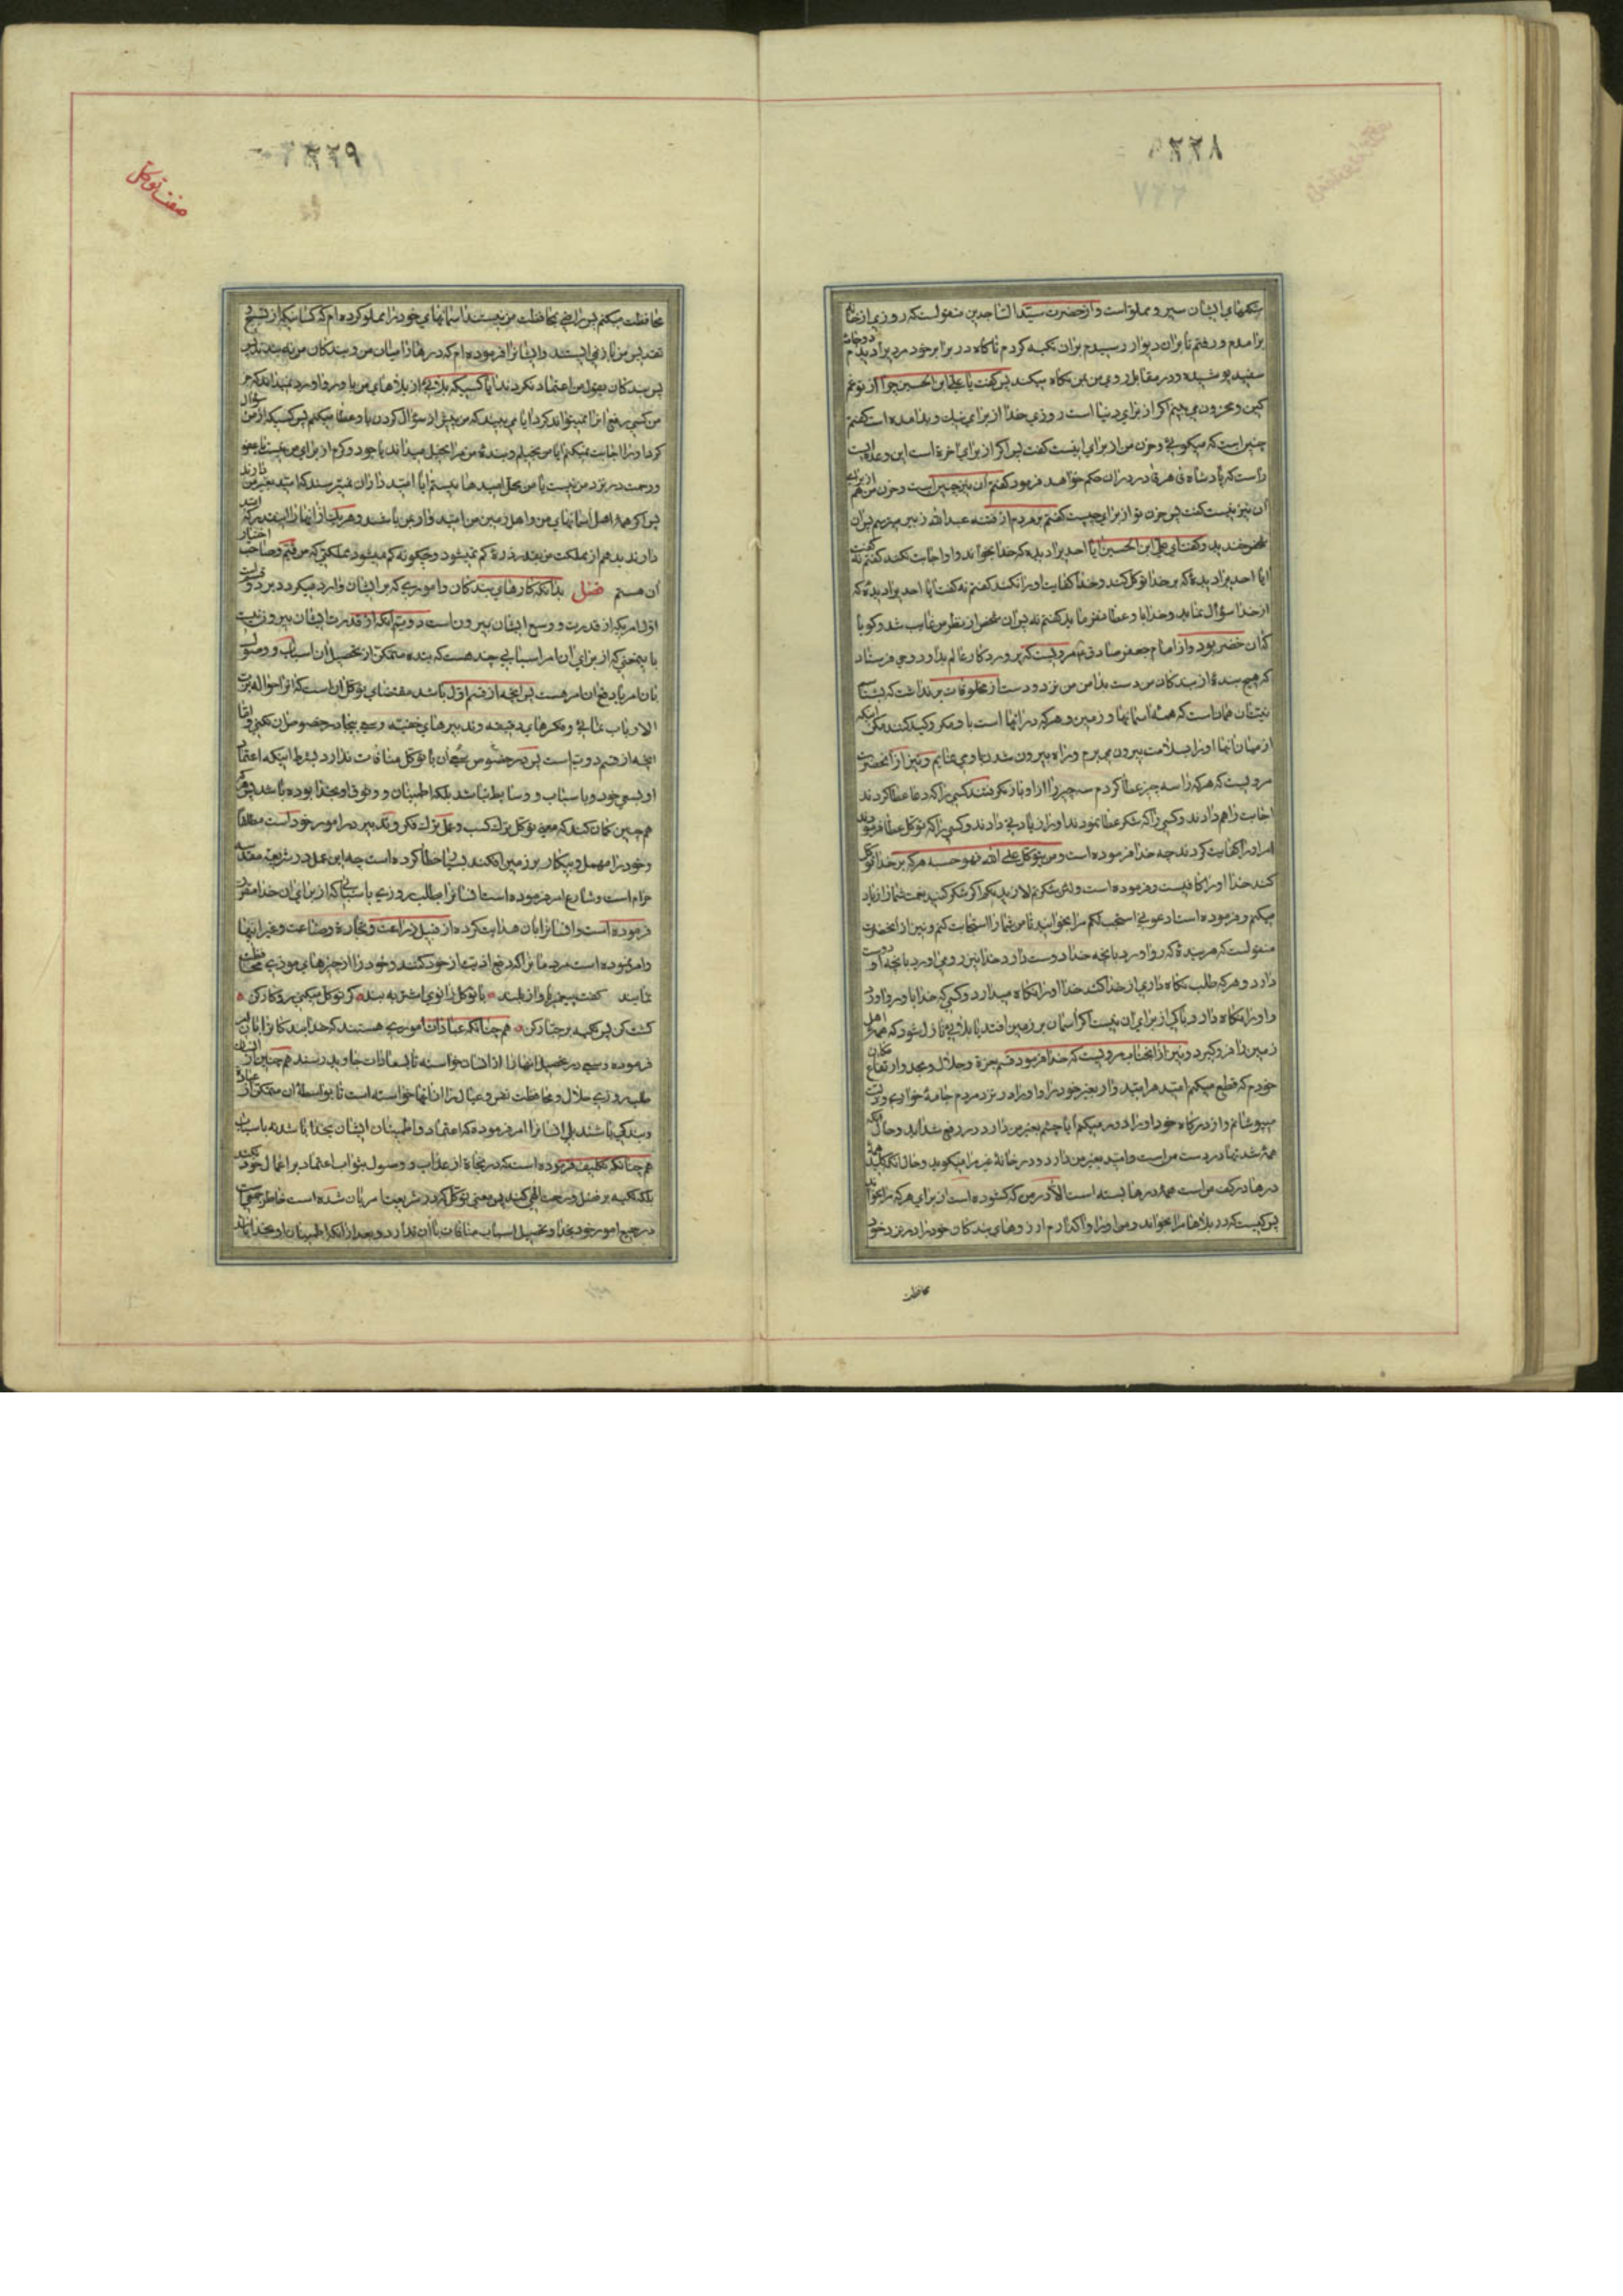 ۳۳۸
شکمهای ایشان سیر و مملو است و از حضرت سید الساجدین منقولست که روزی از خانه
برامدم و رفتم تا بران دیوار رسیدم بران تکیه کردم ناکاه در برابر خود مردیرا دیدم
دو جامه
سفید پوشیده و در مقابل روی من بمن نکاه میکند پس کفت یا علی ابن الحسین چرا از تو غم
کین و محزون می بینم اکر از برای دنیا است روزی خدا از برای نیک و بد امده است کفتم
چنین است که میکوئی و حزن من از برای این نیست کفت پس اکر از برای اخرة است این وعده ایست
راست که پادشاه قاهر قادر دران حکم خواهد فرمود کفتم ان نیز چنین است و حزن من هم از برای
ان نیز نیست کفت پس حزن تو از برای چیست کفتم بر مردم از فتنه عبد الله زبیر میترسم پس ان
شخص خندید و کفت ای علی ابن الحسین ایا احدیرا دیده که خدا بخواند و او اجابت نکند کفتم نه کفت
ایا احدیرا دیدۀ که بر خدا توکل کند و خدا کفایت او را نکند کفتم نه کفت ایا احدیرا دیدۀ که
از خدا سؤال نماید و خدا باو عطا نفرماید کفتم نه پس ان شخص از نظر من غایب شد و کویا
کان خضر بود و از امام جعفر صادق مرویست که پروردکار عالم بداود وحی فرستاد
که هیچ بندۀ از بندکان من دست بدامن من نزد و دست از مخلوقات بر نداشت که بشناسم
نیتش همان است که همه اسمانها و زمین و هرکه در انها است با او مکر و کید کنند مکر اینکه
از میان انها او را بسلامت بیرون می برم و راه بیرون شدن باو می نمایم و نیز از انحضرت
مرویست که هرکه را سه چیز عطا کردم سه چیز را از او باز نکرفتند کسی را که دعا عطا کردند
اجابت را هم دادند و کسی را که شکر عطا نمودند او را زیادتی دادند و کسی را که توکل عطا فرمودند
امر او را کفایت کردند چه خدا فرموده است و من یتوکل علی الله فهو حسبه هرکه بر خدا توکل
کند خدا او را کافیست و فرموده است و لئن شکرتم لازیدنکم اکر شکر کنید نعمت شما را زیاد
میکنم و فرموده است ادعونی استجب لکم مرا بخوانید تا من شما را استجابت کنم و نیز از انحضرت
منقولست که هر بندۀ که رو اورد بانچه خدا دوست دارد خدا نیز روی اورد بانچه او دوست
دارد و هرکه طلب نکاه داری از خدا کند خدا او را نکاه میدارد و کسی که خدا باو رو اورد
و او را نکاه دارد باکی از برای ان نیست اکر اسمان بر زمین افتد یا بلائی نازل شود که همه اهل
زمین را فرو کیرد و نیز از انجناب مرویست که خدا فرمود قسم بعزة و جلال و مجد و ارتفاع مکان
خودم که قطع میکنم امید هر امید وار بغیر خود را و او را در نزد مردم جامۀ خواری و مذلت
میپوشانم و از درکاه خود او را دور میکنم ایا چشم بغیر من دارد در رفع شداید و حال انکه
همۀ شدتها در دست من است و امید بغیر من دارد و در خانۀ غیر مرا میکوبد و حال انکه کلید همۀ
درها در کف من است همه درها بسته است الا در من که کشوده است از برای هرکه مرا بخواند
پس کیست که در بلاها مرا بخواند و من او را واکذارم ارزوهای بندکان خود را در نزد خود
محافظت
۳۳۹
صفت توکل
محافظت میکنم پس راضی بمحافظت من نیستند اسمانهای خود را مملو کرده ام که کسانیکه از تسبیح و
تقدیس من باز نمی ایستند و ایشانرا فرموده ام که درها را میان من و بندکان من نه بندند پس
پس بندکان بقول من اعتماد نکردند ایا کسیکه بلائی از بلاهای من باو رو اورد نمیداند که جز
من کسی رفع انرا نمیتواند کرد ایا می بیند که من پیش از سؤال کردن باو عطا میکنم پس کسیکه از من سؤال
کرد او را اجابت نمیکنم ایا من بخیلم و بندۀ من مرا بخیل میداند یا جود و کرم از برای من نیست یا عفو
و رحمت در نزد من نیست یا من محل امیدها نیستم ایا امید داران نمیترسند که امید بغیر من دارند
پس اکر همۀ اهل اسمانهای من و اهل زمین من امید وار بمن باشند و هر یک از انها را اینقدر که امید
دارند بدهم از مملکت من بقدر ذرۀ کم نمیشود و چکونه کم میشود مملکتی که من قیم و صاحب اختیار
ان هستم فصل بدانکه کارهای بندکان و اموری که بر ایشان وارد میکردد بر دو قسم است
اول امریکه از قدرت و وسع ایشان بیرون است دویم انکه از قدرت ایشان بیرون نیست
باینمعنی که از برای ان امر اسبابی چند هست که بنده متمکن از تحصیل ان اسباب و وصول
بان امر یا دفع ان امر هست پس انچه از قسم اول باشد مقتضای توکل ان است که انرا حواله برب
الارباب نمائی و مکرهای دقیقه و تدبیرهای خفیه و سعی بیجا در خصوص ان نکنی و اما
انچه از قسم دویم است پس در خصوص سعی ان با توکل منافات ندارد بشرط اینکه اعتماد
او بسعی خود و باسباب و وسایط نباشد بلکه اطمینان و وثوق او بخدا بوده باشد پس کسی
هم چنین کمان کند که معنی توکل ترک کسب و عمل و ترک فکر و تدبیر در امور خود است مطلقا
و خود را مهمل و بیکار بر زمین افکند بسی خطا کرده است چه این عمل در شریعت مقدسه
حرام است و شارع امر فرموده است انسانرا بطلب روزی باسبابی که از برای ان خدا مقرر
فرموده است و انسانرا بان هدایت کرده از قبیل زراعت و تجارة و صناعت و غیر اینها
و امر نموده است مردمانرا که دفع اذیت از خود کنند و خود را از چیزهای موذی محافظت
نمایند کفت پیغمبر باواز بلند با توکل زانوی اشتر به بند کر توکل میکنی در کار کن
کشت کن پس تکیه بر جبار کن هم چنانکه عبادات اموری هستند که خدا بندکانرا بان امر
فرموده و سعی در تحصیل انها را از انسان خواسته تا بسعادات جاوید رسند هم چنین از انسان
طلب روزی حلال و محافظت نفس و عیال را از انها خواسته است تا بواسطه ان متمکن از عبادة
و بندکی باشند بلی انسانرا امر فرموده که اعتماد و اطمینان ایشان بخدا باشد نه باسباب
هم چنانکه تکلیف فرموده است که در نجاة از عذاب و وصول بثواب اعتماد بر اعمال خود نکنند
بلکه تکیه بر فضل و رحمت الهی کنند پس معنی توکل که در شریعت امر بان شده است خاطر جمعی است
در جمیع امور خود بخدا و تحصیل اسباب منافات با ان ندارد و بعد از انکه اطمینان او بخدا باشد